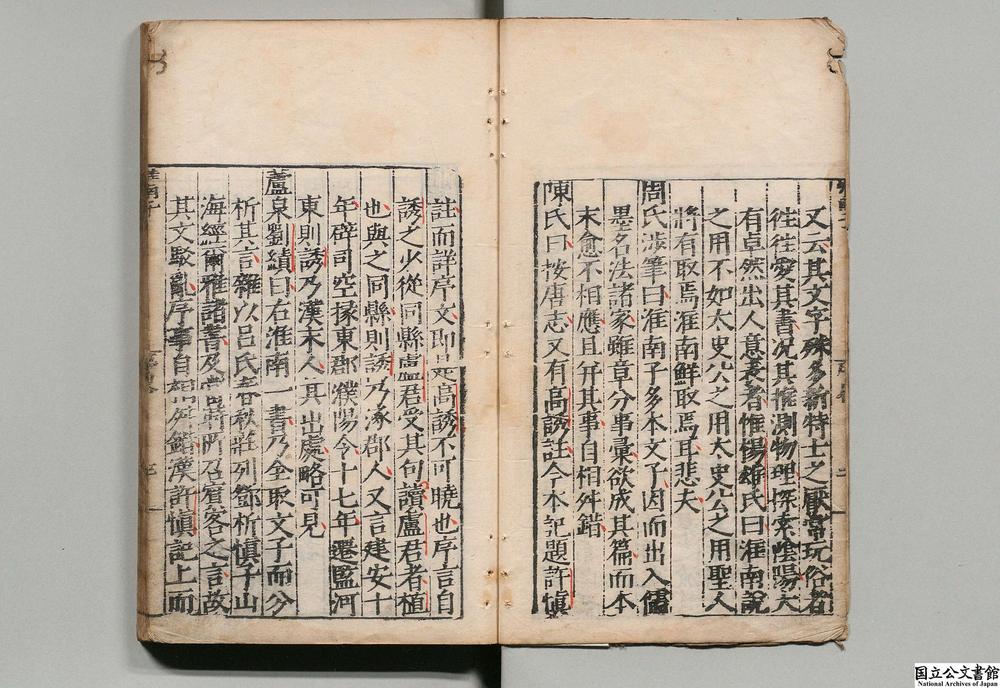 又云其文字殊多新特士之厭常玩俗者
往往愛其書况其推測物理探索陰陽大
有卓然出人意表者惟楊雄氏曰淮南說
之用不如太史公之用太史公之用聖人
將有取焉淮南鮮取焉耳悲夫
周氏涉筆曰淮南子多本文子因而出入儒
墨名法諸家雖章分事彙欲成其篇而本
末愈不相應且并其事自相舛錯
陳氏曰按唐志又有高誘註今本記題許慎
註而詳序文即是高誘不可曉也序言自
誘之少從同縣盧君受其句讀盧君者植
也與之同縣則誘乃涿郡人又言建安十
年辟司空掾東郡濮陽令十七年遷監河
東則誘乃漢末人其出處略可見
蘆泉劉績曰右淮南一書乃全取文子而分
析其言雜以呂氏春秋莊列鄧析慎子山
海經爾雅諸書及當時所召賓客之言故
其文駁亂序事自相舛錯漢許慎記上而
淮南子
国立公文書館
National Archives of Japan